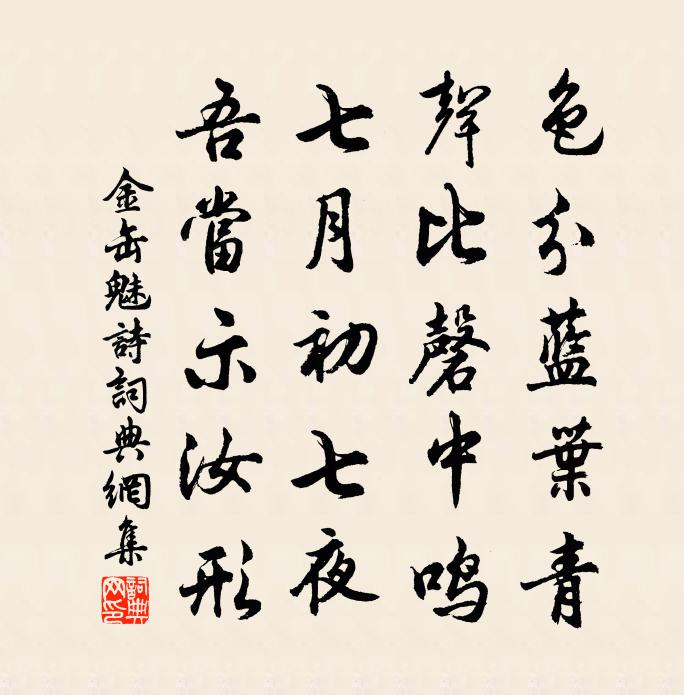 色分藍葉青
聲比磬中鳴
七月初七夜
吾當示汝形
金缶魅詩詞典網集
詞典
网印